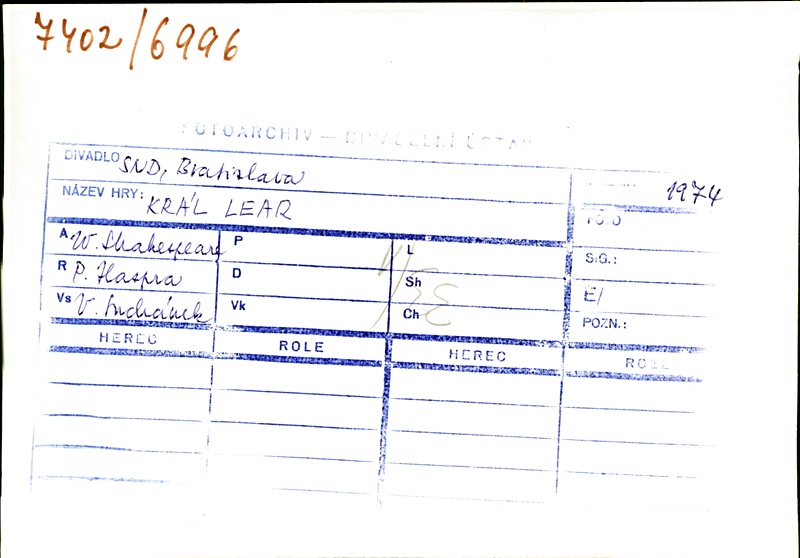 7402/6996
FOTOARCHIV — DIVADELNÍ ÚSTAV
DIVADLO SND, Bratislava 1974
NÁZEV HRY: KRÁL LEAR
A W. Shakespeare P L
R P. Haspra D Sh SIG.:
Vs V. Suchánek Vk Ch E/
POZN.:
HEREC ROLE HEREC ROLE